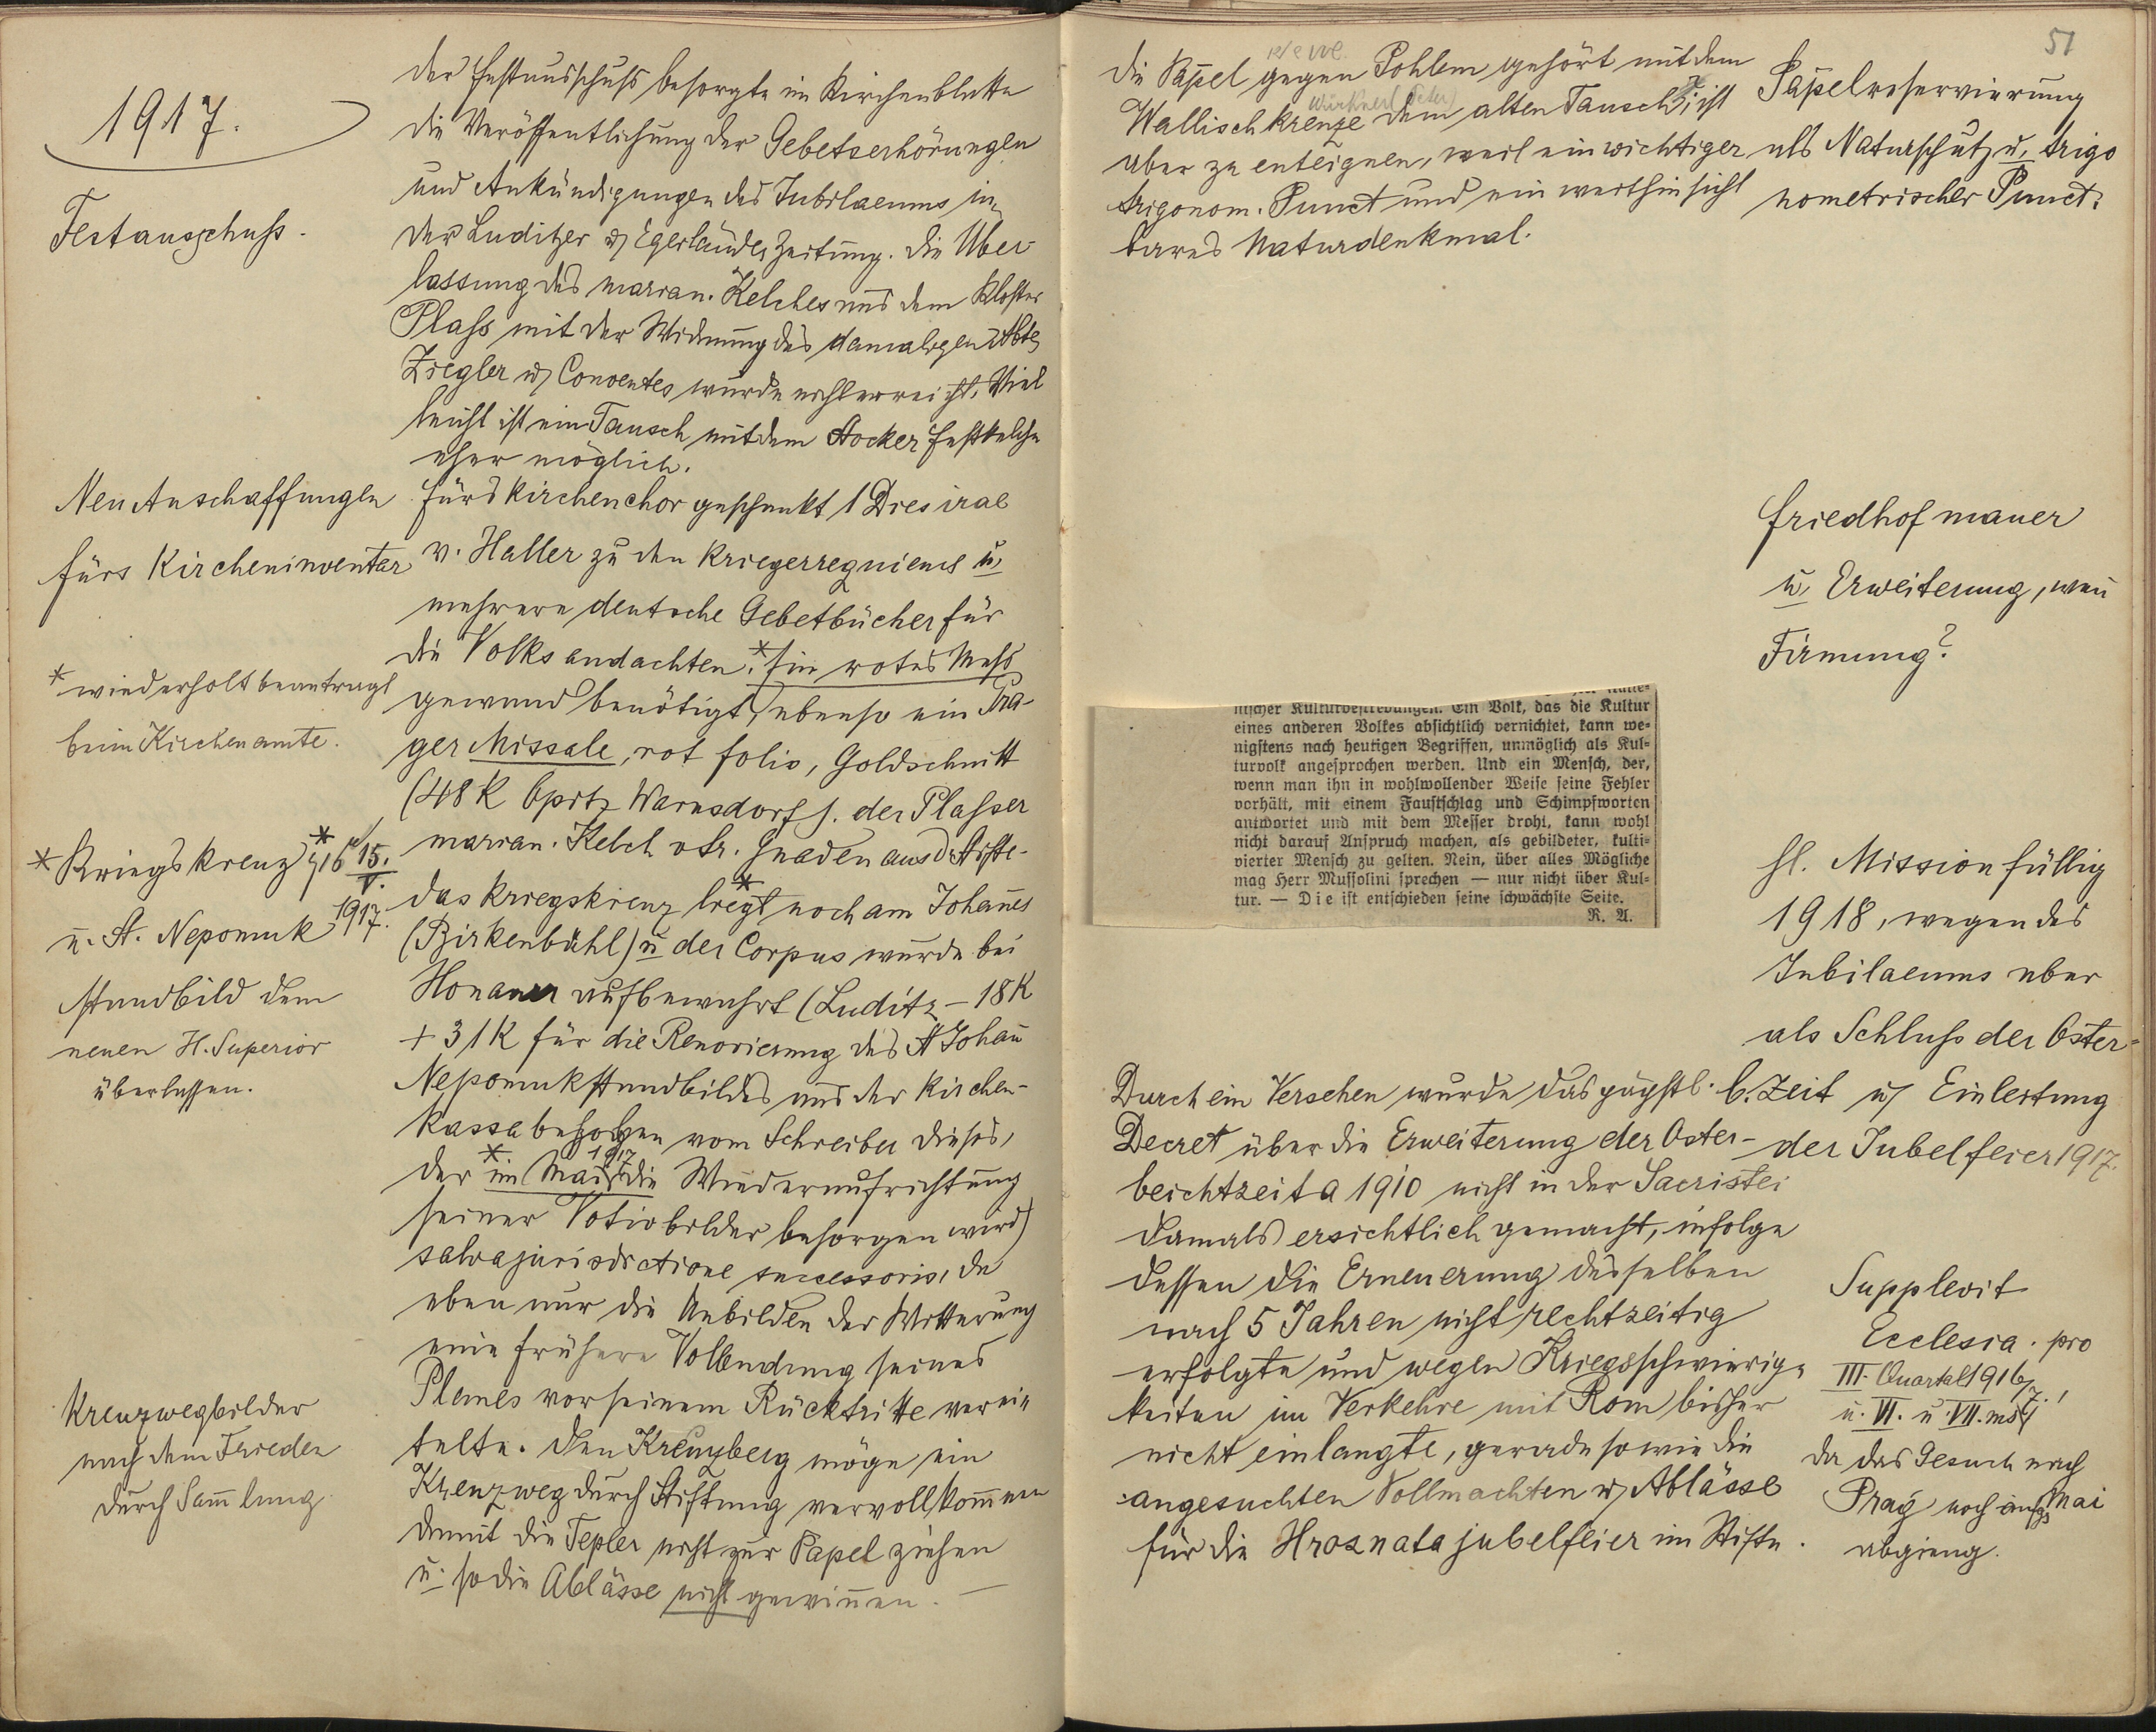 1917.
Festausschuss.
der Festausschuss besorgte im Kirchenblatte
die Veröffentlichung der Gebetserhörungen
und Ankündigungen des Jubilaeums in
der Luditzer u. Egerländer Zeitung. Die Über-
lassung des marian. Kelches aus dem Kloster
Plass mit der Widmung des damaligen Abtes
Ziegler u. Conventes wurde nicht erreicht. Viel
leicht ist ein Tausch mit dem Stocker Festkelche
eher möglich.
Neu Anschaffungen
fürs Kircheninventar
Fürs Kirchenchor geschenkt 1 Dies irae
v. Haller zu den Kriegerrequiems u.
mehrere deutsche Gebetbücher für
die Volksandachten.* Ein rotes Mess
gewand benötigt, ebenso ein Pra-
ger Missale, rot folio, Goldschnitt
(48 K Opitz Warnsdorf). der Plasser
marian. Kelch v. Sr. Gnaden aus d. Stifte-
* wiederholt beantragt
beim Kirchenamte.
* Kriegskreuz 1916 15./V. 1917.
u. St. Nepomuk
Standbild dem
neuen H. Superior
überlassen.
das Kriegskreuz liegt* noch am Johannes
(Birkenbühl) u. der Corpus wurde bei
Honauer aufbewahrt (Luditz – 18 K
+ 31 K für die Renovierung des St Johann
Nepomukstandbildes aus der Kirchen-
kassa behoben vom Schreiber dieses,
der * im Mai 1917 die Wiederaufrichtung
seiner Votivbilder besorgen wird)
salva jurisdictione successoris, da
eben nur die Unbilden der Witterung
eine frühere Vollendung seines
Planes vor seinem Rücktritte verei-
telte. Den Kreuzberg möge ein
Kreuzweg durch Stiftung vervollkommnen
damit die Tepler nicht zur Papel ziehen
u. so die Ablässe nicht gewinnen. –
Kreuzwegbilder
nach dem Frieden
durch Sammlung
51
Die Papel gegen Pohlem gehört mit dem
Wallischkreuze dem alten Tausch, ist
aber zu enteignen, weil ein wichtiger
trigonom. Punct und ein weithin sicht
bares Naturdenkmal.
Papelreservierung
als Naturschutz u. trigo
nometrischer Punct.
Friedhofmauer
u. Erweiterung, wann
Firmung?
nischer Kulturbestrebungen. Ein Volk, das die Kultur
eines anderen Volkes absichtlich vernichtet, kann we-
nigstens nach heutigen Begriffen, unmöglich als Kul-
turvolk angesprochen werden. Und ein Mensch, der,
wenn man ihn in wohlwollender Weise seine Fehler
vorhält, mit einem Faustschlag und Schimpfworten
antwortet und mit dem Messer droht, kann wohl
nicht darauf Anspruch machen, als gebildeter, kulti-
vierter Mensch zu gelten. Nein, über alles Mögliche
mag Herr Mussolini sprechen — nur nicht über Kul-
tur. — Die ist entschieden seine schwächste Seite.
R. A.
hl. Mission fällig
1918, wegen des
Jubilaeums aber
als Schluss der Öster-
b. Zeit u. Einleitung
der Jubelfeier 1917.
Durch ein Versehen wurde das päpstl.
Decret über die Erweiterung der Oster-
beichtzeit a 1910 nicht in der Sacristei
damals ersichtlich gemacht, infolge
dessen die Erneuerung desselben
nach 5 Jahren nicht rechtzeitig
erfolgte und wegen Kriegsschwierig-
keiten im Verkehre mit Rom bisher
nicht einlangte, gerade so wie die
angesuchten Vollmachten u. Ablässe
für die Hroznatajubelfeier im Stifte.
Supplevit
Ecclesia pro
III. Quartal 1916/7.!
u. VI. u. VII.
da das Gesuch nach
Prag noch anfgs Mai
abgieng.